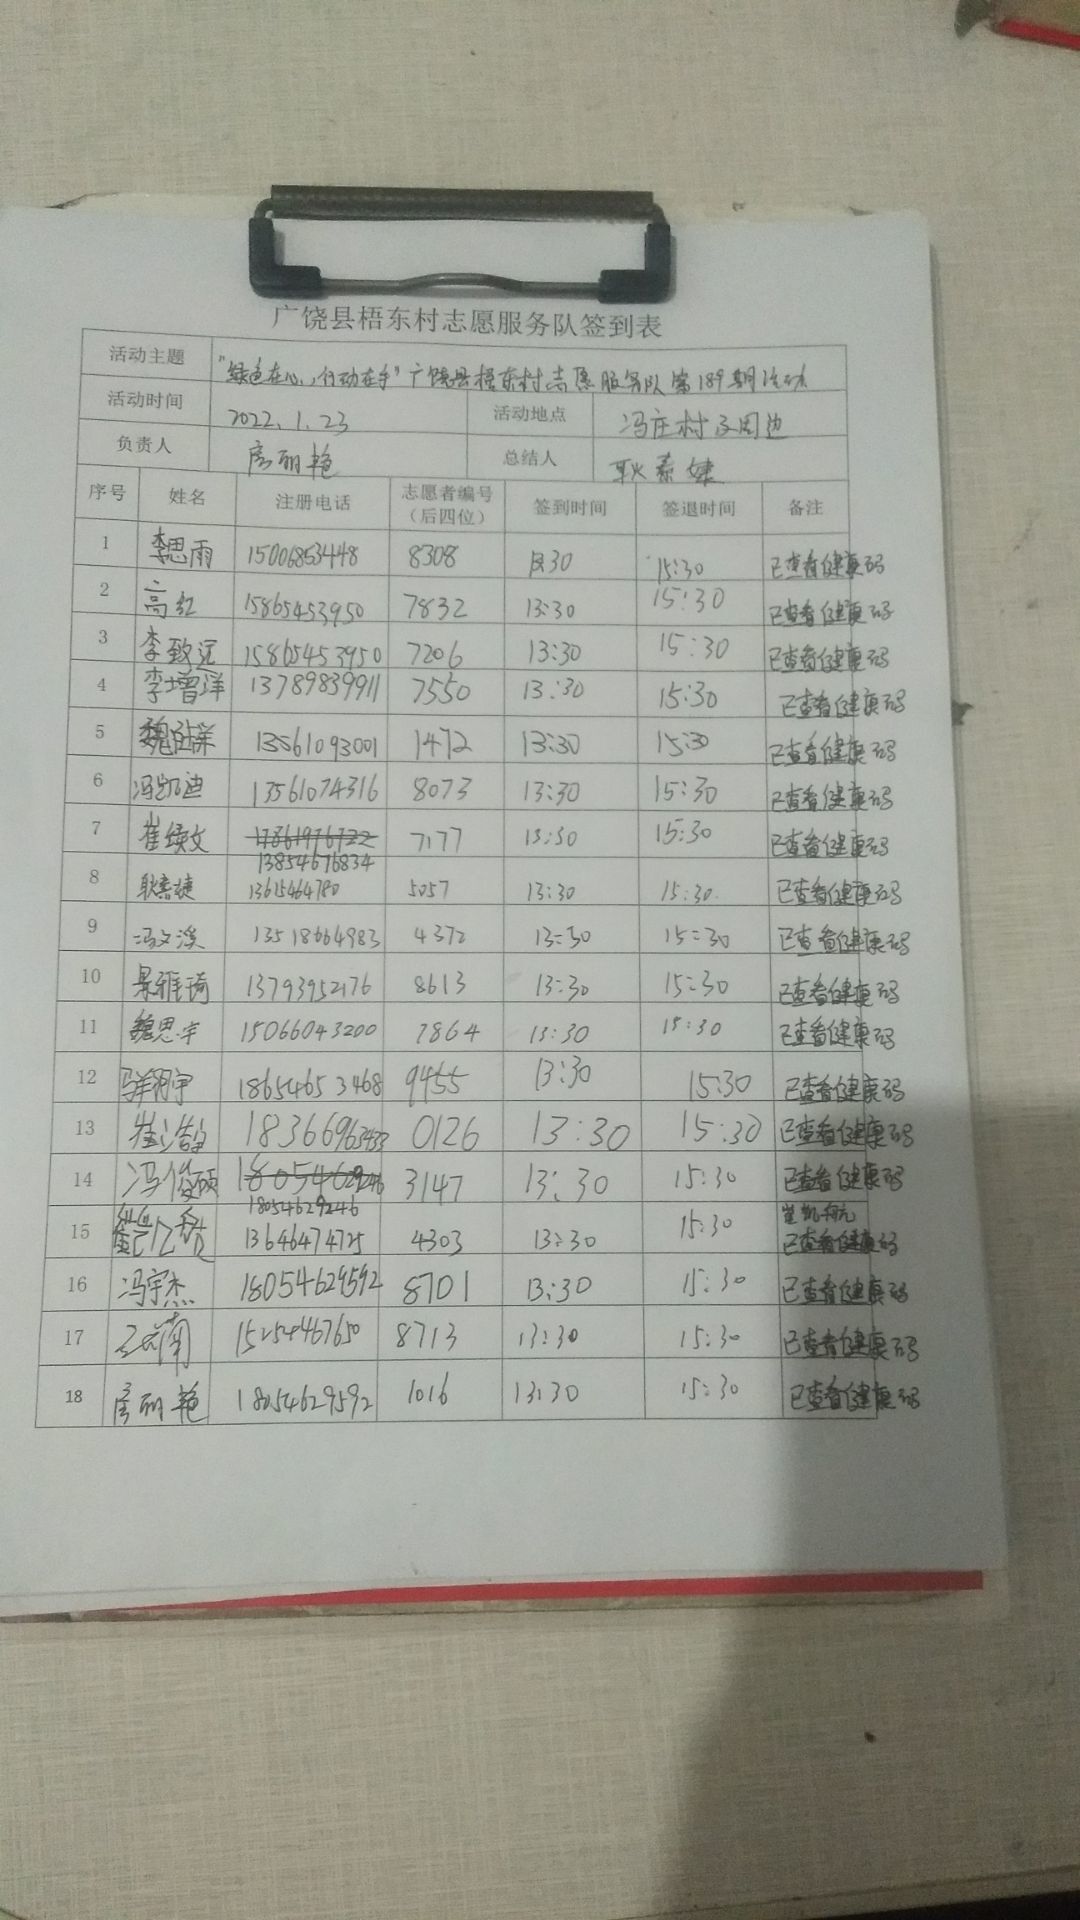 广饶县梧东村志愿服务队签到表
活动主题 "绿色在心,行动在手"广饶县梧东村志愿服务队第189期活动
活动时间 2022.1.23 活动地点 冯庄村及周边
负责人 房丽艳 总结人 耿
序号 姓名 注册电话 志愿者编号（后四位） 签到时间 签退时间 备注
1 李思雨 15006853448 8308 13:30 15:30 已查看健康码
2 高红 15865453950 7832 13:30 15:30 已查看健康码
3 李致远 15865453950 7206 13:30 15:30 已查看健康码
4 李增洋 13789839911 7550 13:30 15:30 已查看健康码
5 魏 13561093001 1472 13:30 15:30 已查看健康码
6 冯凯迪 13561074316 8073 13:30 15:30 已查看健康码
7 崔续文 17861976722 7177 13:30 15:30 已查看健康码
13854676834
8 耿 13615464780 5057 13:30 15:30 已查看健康码
9 冯文溪 13518664983 4372 13:30 15:30 已查看健康码
10 景雅琦 13793952176 8613 13:30 15:30 已查看健康码
11 魏思宇 15066043200 7864 13:30 15:30 已查看健康码
12 18654653468 9455 13:30 15:30 已查看健康码
13 崔 18366963433 0126 13:30 15:30 已查看健康码
14 冯俊硕 18054629246 3147 13:30 15:30 已查看健康码
18054629246 崔凯航
15 13646474725 4303 13:30 15:30 已查看健康码
16 冯宇杰 18054629592 8701 13:30 15:30 已查看健康码
17 15254467650 8713 13:30 15:30 已查看健康码
18 房丽艳 18054629592 1016 13:30 15:30 已查看健康码